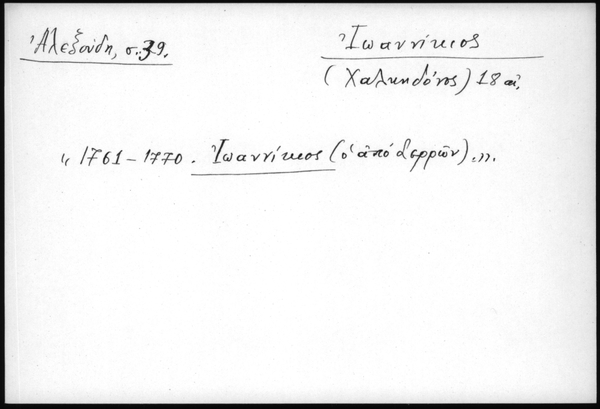 Ἀλεξούδη, σ. 39.
Ἰωαννίκιος
(Χαλκηδόνος) 18 αἰ.
"1761 – 1770. Ἰωαννίκιος (ὁ ἀπό Σερρῶν).".